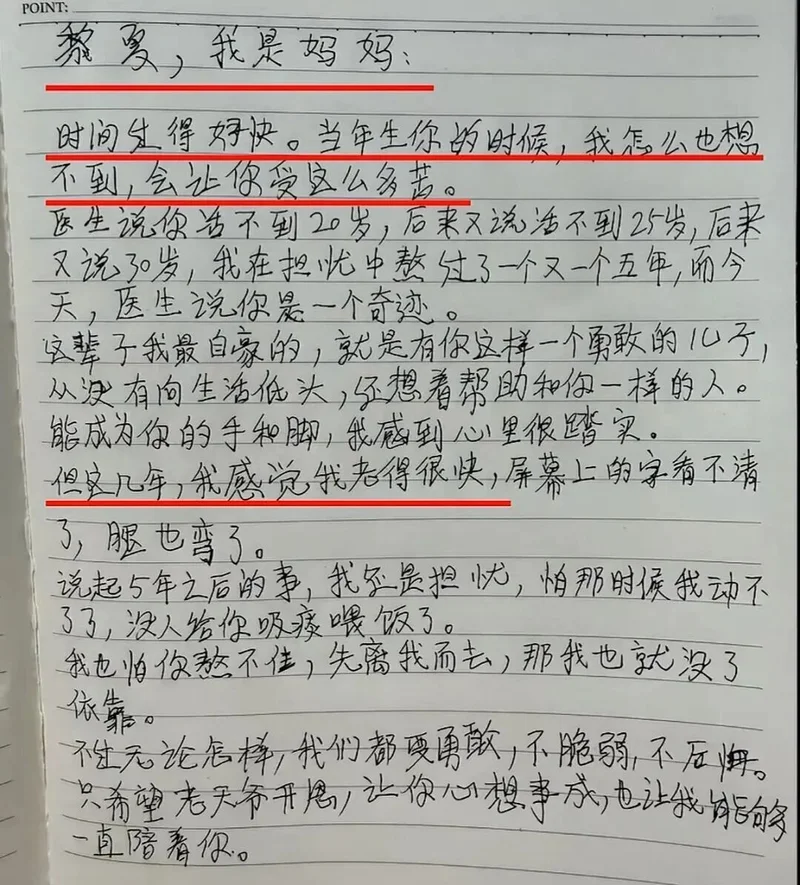 POINT:
黎夏，我是妈妈：
时间过得好快。当年生你的时候，我怎么也想
不到，会让你受这么多苦。
医生说你活不到20岁，后来又说活不到25岁，后来
又说30岁，我在担忧中熬过了一个又一个五年，而今
天，医生说你是一个奇迹。
这辈子我最自豪的，就是有你这样一个勇敢的儿子，
从没有向生活低头，还想着帮助和你一样的人。
能成为你的手和脚，我感到心里很踏实。
但这几年，我感觉我老得很快，屏幕上的字看不清
了，腿也弯了。
说起5年之后的事，我还是担忧，怕那时候我动不
了了，没人给你吸痰喂饭了。
我也怕你熬不住，先离我而去，那我也就没了
依靠。
不无论怎样，我们都要勇敢，不脆弱，不后悔。
只希望老天爷开恩，让你心想事成，也让我能够
一直陪着你。